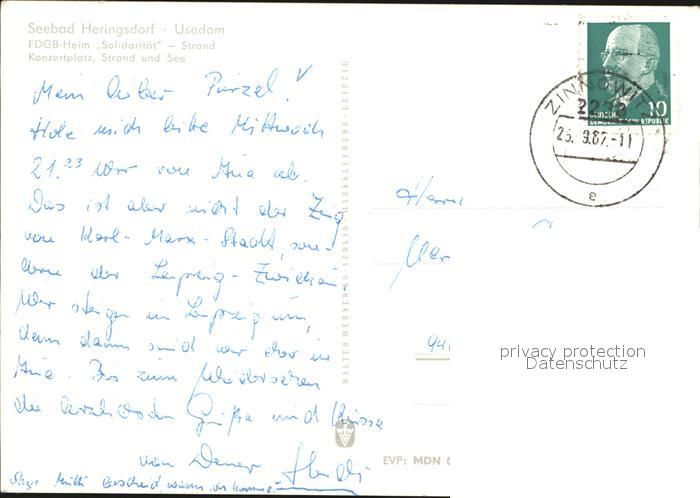 Seebad Heringsdorf · Usedom
FDGB-Heim „Solidarität" — Strand
Konzertplatz, Strand und See
Mein lieber Purzel!
Hole mich bitte Mittwoch
21.23 Uhr von Aue ab.
Das ist aber nicht der Zug
von Karl-Marx-Stadt, son-
dern der Leipzig-Zwickau
Wir steigen in Leipzig um,
denn dann sind wir eher in
Aue. Bis zum Wiedersehen
die herzlichsten Grüße und Küsse
von Deiner
Sage Mutti Bescheid, wann ich komme.
WALTER WERNER KG VERLAG MARKKLEEBERG-LEIPZIG
EVP: MDN
Herrn
Wer
941
10
DEUTSCHE
DEMOKRATISCHE REPUBLIK
ZINNOWITZ
-11
e
privacy protection
Datenschutz